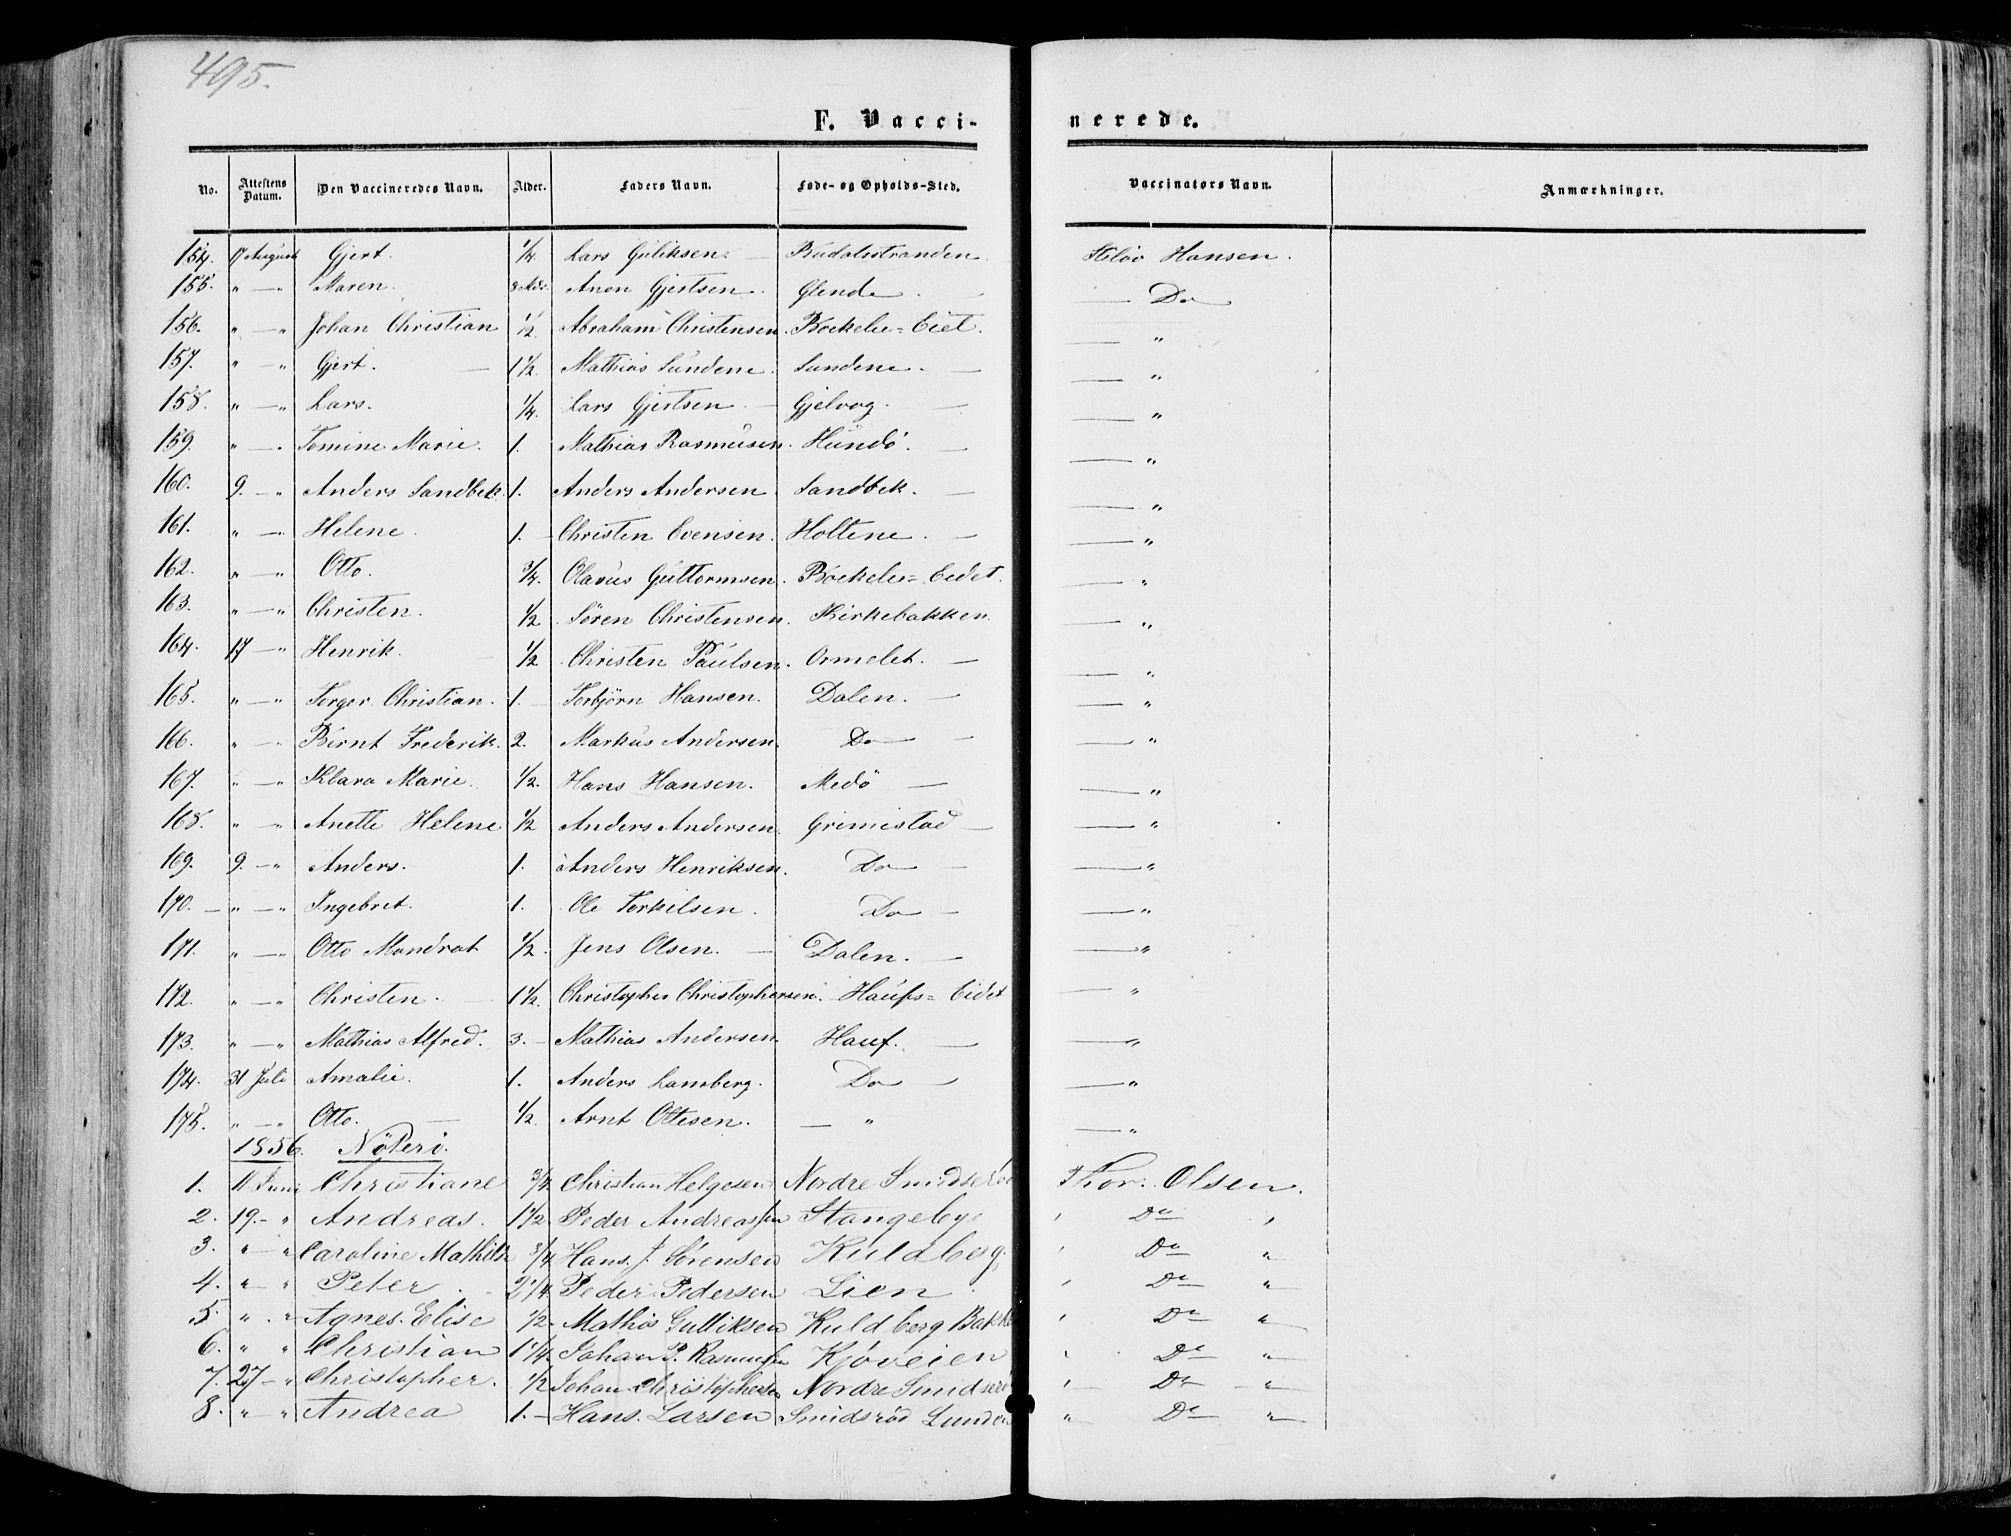 495.
F. Vacci- nerede.
No. Attestens Datum. Den Vaccineredes Navn. Alder. Faders Navn. Føde- og Opholds-Sted. Vaccinators Navn. Anmærkninger.
154. 17 August Gjert. 1/4. Lars Guliksen. — Budalsstranden Hansen.
155. " — " Maren. 8 Mdr. Anon Gjertsen. Glende. — — Do
156. " — " Johan Christian 1/2. Abraham Christensen. Bockelie=Eiet. — "
157. " — " Gjert. — 1 1/2. Mathias Sundene. Sundene. — — "
158. " — " Lars. 1/4. Lars Gjertsen. — Gjelvog. — — "
159. " — " Tomine Marie. 1. Mathias Rasmusen. Hundö. — — "
160. 9. — " Anders Sandbek. 1. Anders Andersen. Sandbek. — — "
161. " — " Helene. 1. — Christen Evensen. Holtene. — — "
162. " — " Otto. 3/4. Olavus Guttormsen. Bockelie=Eidet. — "
163. " — " Christen. 1/2 Sören Christensen. Kirkebakken. — "
164. 17 — " Henrik. — 1/2 Christen Paulsen. Ormelet. — — "
165. " — " Torger Christian. 1. — Torbjörn Hansen. Dalen. — — "
166. " — " Bernt Frederik. 2. Markus Andersen. Do — — "
167. " — " Klara Marie. 1/2. Hans Hansen. Medö — — "
168. " — " Anette Helene 1/2 Anders Andersen. Grimestad — — "
169. 9. — " Anders. 1. Anders Henriksen. Do — — "
170. — " — " Ingebret. 1. Ole Torkilsen. Do — — "
171. " — " Otto Mandrat 1/2. Jens Olsen. — Dalen. — — "
172. " — " Christen. — 1 1/2. Christopher Christophersen. Haufs=Eidet — "
173. " — " Mathias Alfred. 3. — Mathias Andersen. Hauf. — — "
174. 31 Juli Amalie. 1. Anders Lamberg. Do — — "
175. " — " Otto. — 1/2. Arnt Ottesen. — " — "
1856. Nöterö.
1. 11 Juni Christiane 3/4 Christian Helgesen Nordre Smidserö Thor. Olsen.
2. 19. — " Andreas. 1 1/2. Peder Andreassen Stangeby. " Do "
3. " — " Caroline Mathilde 3/4 Hans J. Sörensen Kuldberg. " Do "
4. " — " Peter 2 1/4. Peder Pedersen Lien " Do "
5. " — " Agnes. Elise 1/2. Mathis Gulliksen Kuldberg Bakke " Do "
6. " " Christian 1 1/4. Johan P. Rasmussen Kjöveien " Do "
7. 27 — " Christopher. 1/2 Johan Christophersen Nordre Smidserö " — Do — "
8. " — " Andrea 1. — Hans. Larsen Smidsröd Lunden " Do "